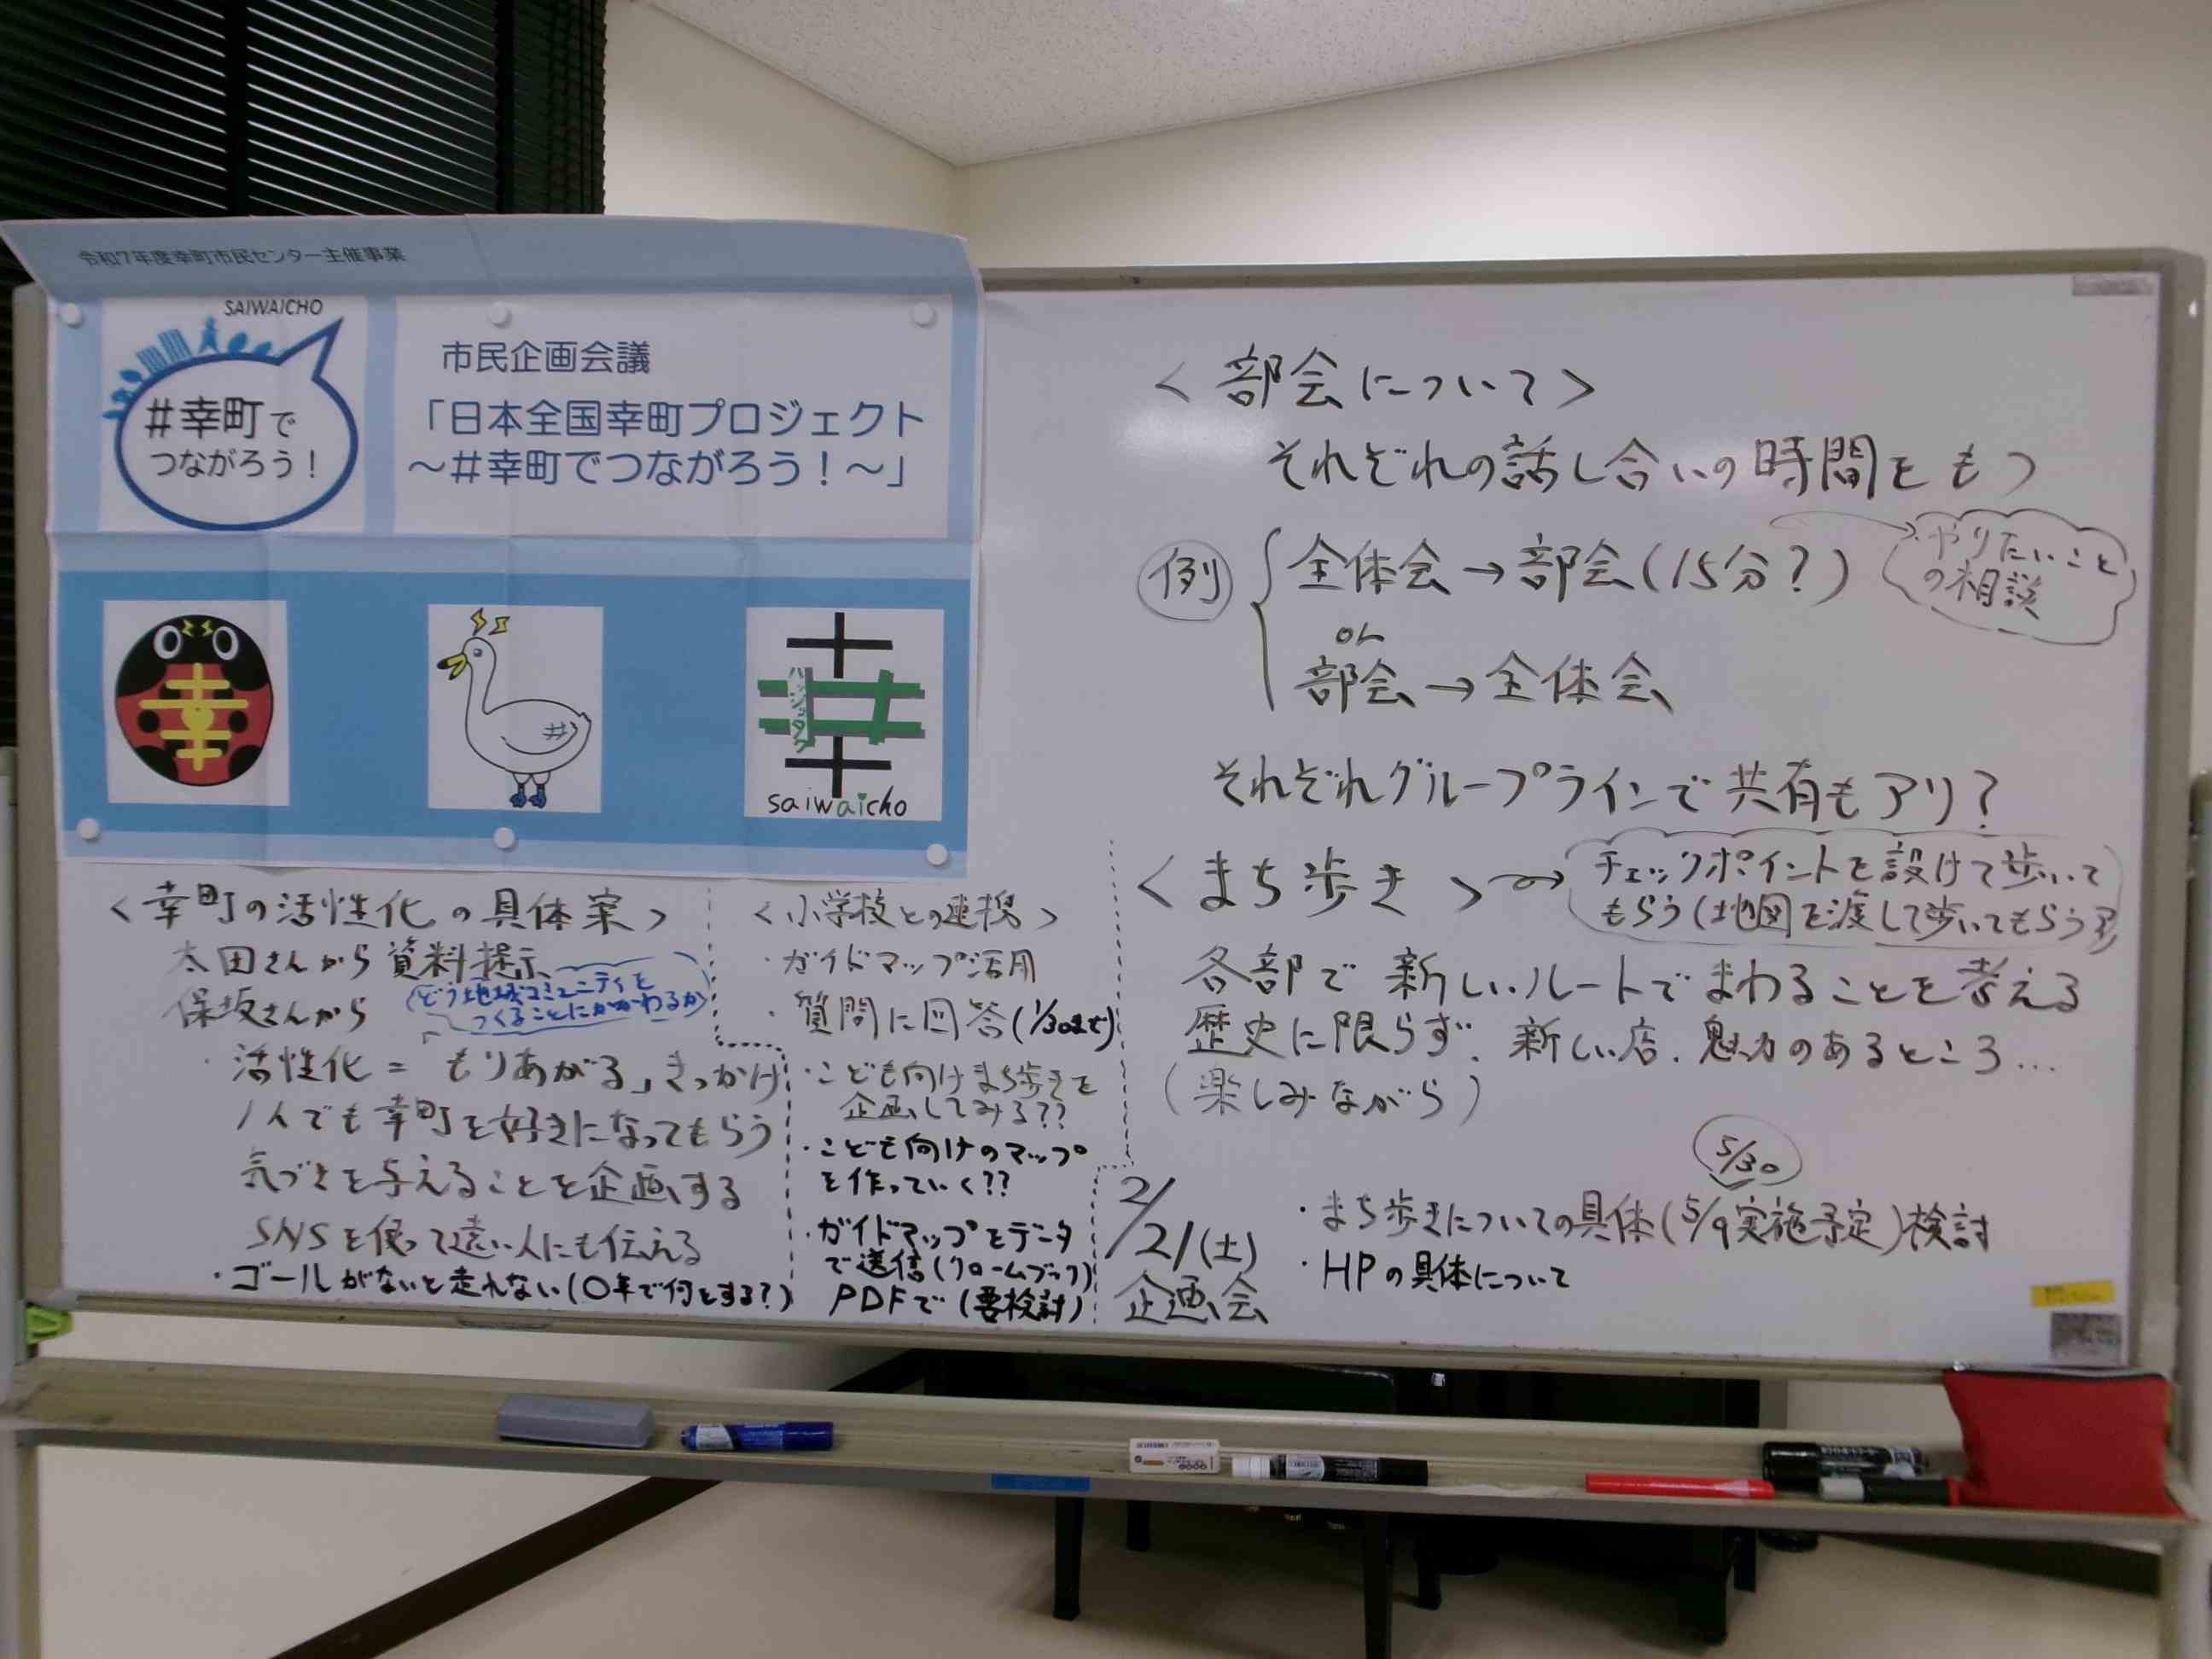 令和7年度幸町市民センター主催事業
SAIWAICHO
#幸町で
つながろう!
市民企画会議
「日本全国幸町プロジェクト
～#幸町でつながろう!～」
幸
#
ハッシュタグ
saiwaicho
<幸町の活性化の具体案>
太田さんから資料提示
保坂さんから
(どう地域コミュニティを
つくることにかかわるか)
・活性化=「もりあがる」きっかけ
1人でも幸町を好きになってもらう
気づきを与えることを企画する
SNSを使って遠い人にも伝える
・ゴールがないと走れない(〇年で何をする?)
<小学校との連携>
・ガイドマップ活用
・質問に回答(1/30まで)
・こども向けまち歩きを
企画してみる??
・こども向けのマップ
を作っていく??
・ガイドマップをデータ
で送信(クロームブック)
PDFで(要検討)
<部会について>
それぞれの話し合いの時間をもつ
例
全体会→部会(15分?)
やりたいこと
の相談
or
部会→全体会
それぞれグループラインで共有もアリ?
<まち歩き>
チェックポイントを設けて歩いて
もらう(地図を渡して歩いてもらう?)
各部で新しいルートでまわることを考える
歴史に限らず、新しい店、魅力のあるところ…
(楽しみながら)
2/21(土)
企画会
5/30
・まち歩きについての具体(5/9実施予定)検討
・HPの具体について